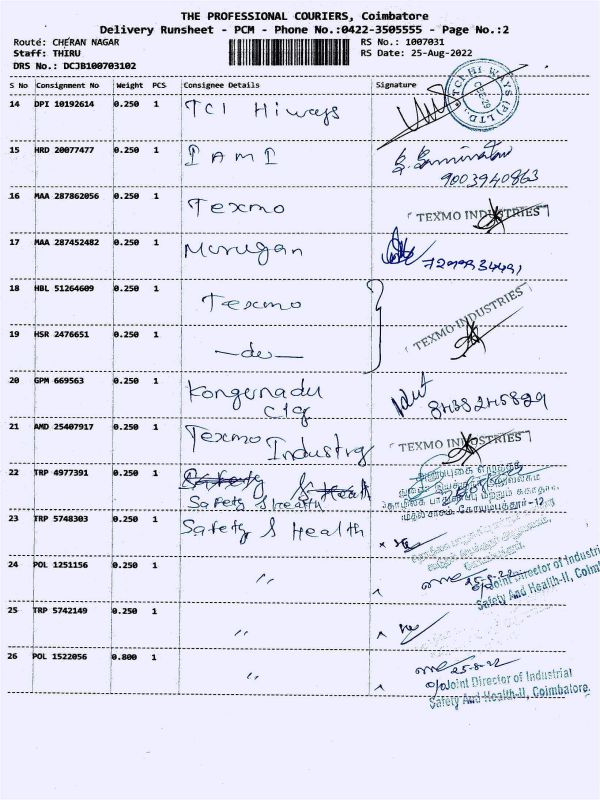 THE PROFESSIONAL COURIERS, Coimbatore
Delivery Runsheet - PCM - Phone No.:0422-3505555 - Page No.:2
Route: CHERAN NAGAR RS No.: 1007031
Staff: THIRU RS Date: 25-Aug-2022
DRS No.: DCJB100703102
S No Consignment No Weight PCS Consignee Details Signature
14 DPI 10192614 0.250 1 TCI Hiways
15 HRD 20077477 0.250 1 IAMI
9003940863
16 MAA 287862056 0.250 1 Texmo TEXMO INDUSTRIES
17 MAA 287452482 0.250 1 Murugan
18 HBL 51264609 0.250 1 Texmo TEXMO INDUSTRIES
19 HSR 2476651 0.250 1 —do—
20 GPM 669563 0.250 1 Kongunadu
clg
21 AMD 25407917 0.250 1 Texmo Industry TEXMO INDUSTRIES
22 TRP 4977391 0.250 1
Safety & health
23 TRP 5748303 0.250 1 Safety & Health
24 POL 1251156 0.250 1 〃 25-8-22
Joint Director of Industrial
Safety And Health-II, Coimbatore
25 TRP 5742149 0.250 1 〃
26 POL 1522056 0.800 1 〃 25-8-22
Joint Director of Industrial
Safety And Health-II, Coimbatore